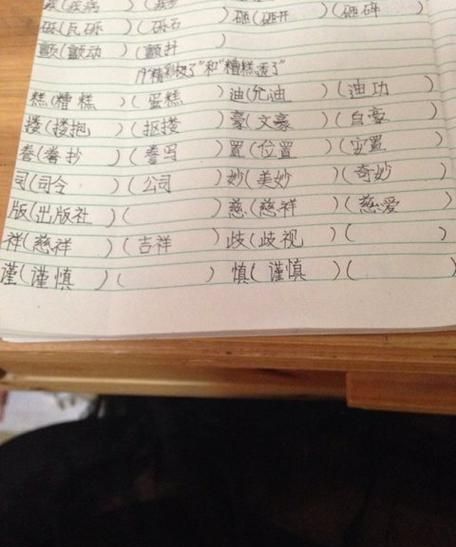 疾(疾病)(疾步) 砸(砸开)(砸碎)
砾(瓦砾)(砾石)
颤(颤动)(颤抖)
17"精彩极了"和"糟糕透了"
糕(糟糕)(蛋糕) 迪(允迪)(迪功)
搂(搂抱)(抠搂) 豪(文豪)(自豪)
誊(誊抄)(誊写) 置(位置)(安置)
司(司令)(公司) 妙(美妙)(奇妙)
版(出版社)( ) 慈(慈祥)(慈爱)
祥(慈祥)(吉祥) 歧(歧视)( )
谨(谨慎)( ) 慎(谨慎)( )